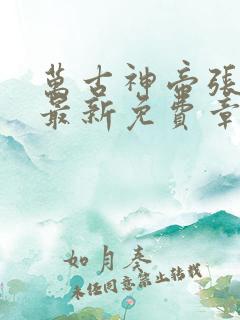 萬古神帝張
最新免費章
如月奏
未经同意禁止转载